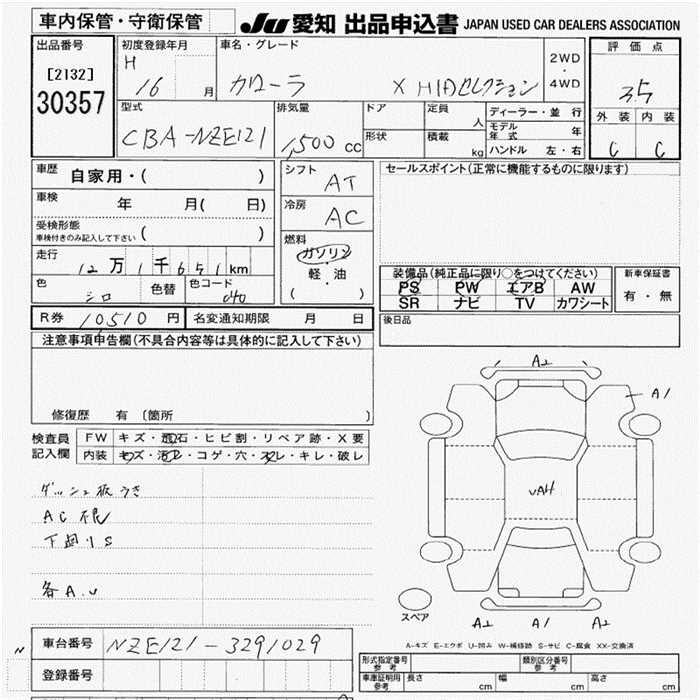 車内保管・守衛保管
JU 愛知 出品申込書 JAPAN USED CAR DEALERS ASSOCIATION
出品番号
[2132]
30357
初度登録年月
H
16 月
車名・グレード
カローラ X HIDセレクション
2WD
・
4WD
評価点
3.5
外装 内装
C C
型式
CBA-NZE121
排気量
1,500 cc
ドア
形状
定員 人
積載 kg
ディーラー・並 行
モデル年式 年
ハンドル 左・右
車歴 自家用・( )
車検 年 月( 日)
受検形態
車検付きのみ記入して下さい ( )
走行
12万1千651km
色 シロ
色替
色コード 040
シフト AT
冷房 AC
燃料
ガソリン
軽・油
( )
セールスポイント(正常に機能するものに限ります)
装備品(純正品に限り○をつけてください)
PS PW エアB AW
SR ナビ TV カワシート
新車保証書
有・無
R券 10510 円
名変通知期限 月 日
後日品
注意事項申告欄(不具合内容等は具体的に記入して下さい)
修復歴 有 〔箇所 〕
検査員記入欄
FW キズ・飛石・ヒビ割・リペア跡・X要
内装 キズ・汚レ・コゲ・穴・スレ・キレ・破レ
ダッシュ板うき
AC不良
下廻りS
各A.U
A2
A1
UAH
A2 A1 A2
スペア
A-キズ E-エクボ U-凹み W-補修跡 S-サビ C-腐食 XX-交換済
車台番号 NZE121-3291029
登録番号
形式指定番号
参考
類別区分番号
参考
車庫証明用
参考
長さ cm
幅 cm
高さ cm